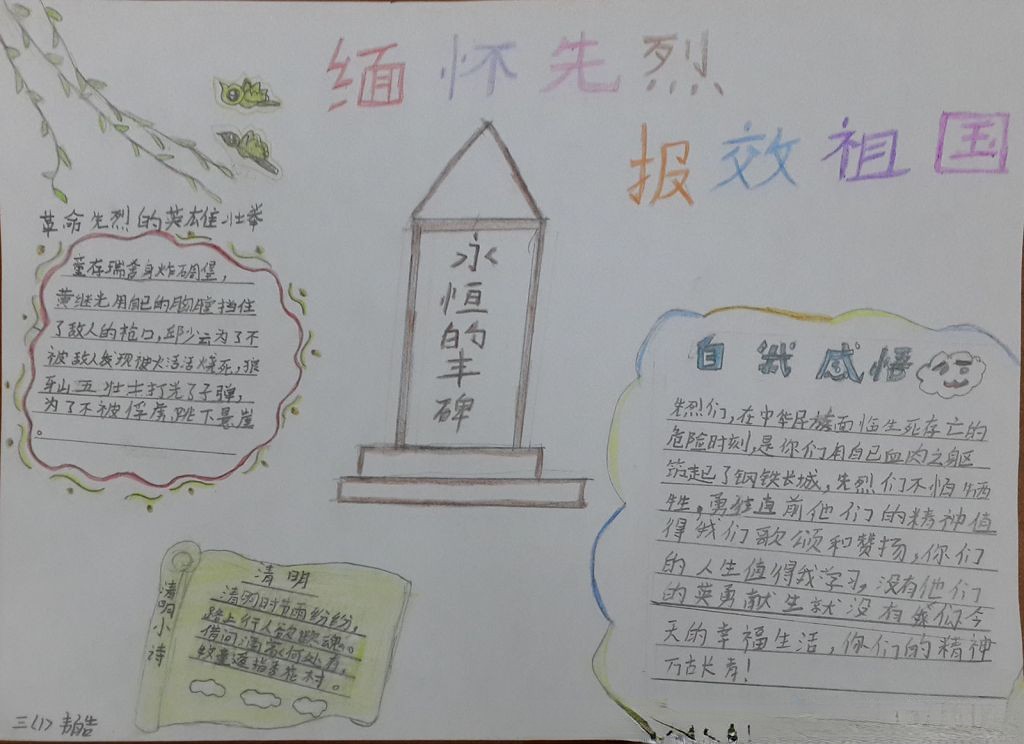 缅怀先烈
报效祖国
革命先烈的英雄壮举
董存瑞舍身炸碉堡，
黄继光用自己的胸膛挡住
了敌人的枪口，邱少云为了不
被敌人发现被火活活烧死，狼
牙山五壮士打光了子弹，
为了不被俘虏，跳下悬崖
。
永恒的丰碑
自我感悟
先烈们，在中华民族面临生死存亡的
危险时刻，是你们用自己血肉之躯
筑起了钢铁长城，先烈们不怕牺
牲，勇往直前他们的精神值
得我们歌颂和赞扬，你们
的人生值得我学习，没有他们
的英勇献生就没有我们今
天的幸福生活，你们的精神
万古长青！
清明小诗
清明
清明时节雨纷纷，
路上行人欲断魂。
借问酒家何处有，
牧童遥指杏花村。
三(1) 韦皓